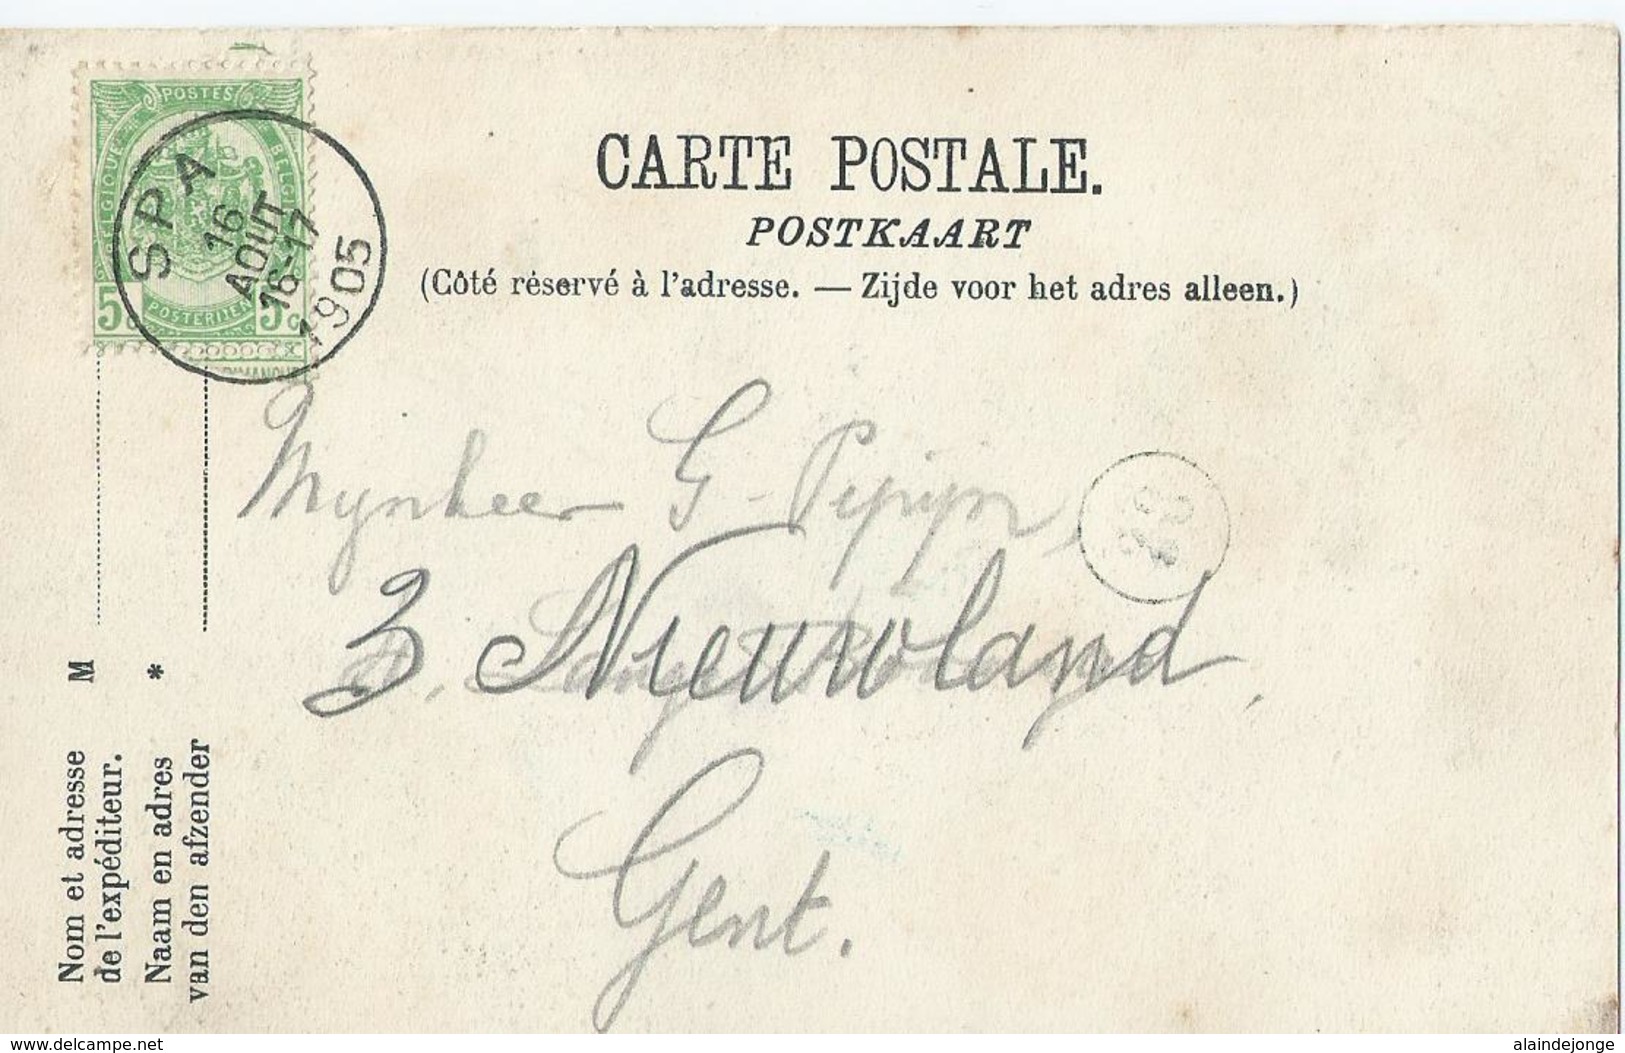 POSTES
BELGIQUE
BELGIË
5c
POSTERIJEN
5c
SPA
16
AOUT
16-17
1905
CARTE POSTALE.
POSTKAART
(Côté réservé à l'adresse. — Zijde voor het adres alleen.)
Mynheer G. Pepijn,
3, Nieuwland,
Gent.
M
*
Nom et adresse
de l'expéditeur.
Naam en adres
van den afzender
www.delcampe.net
alaindejonge